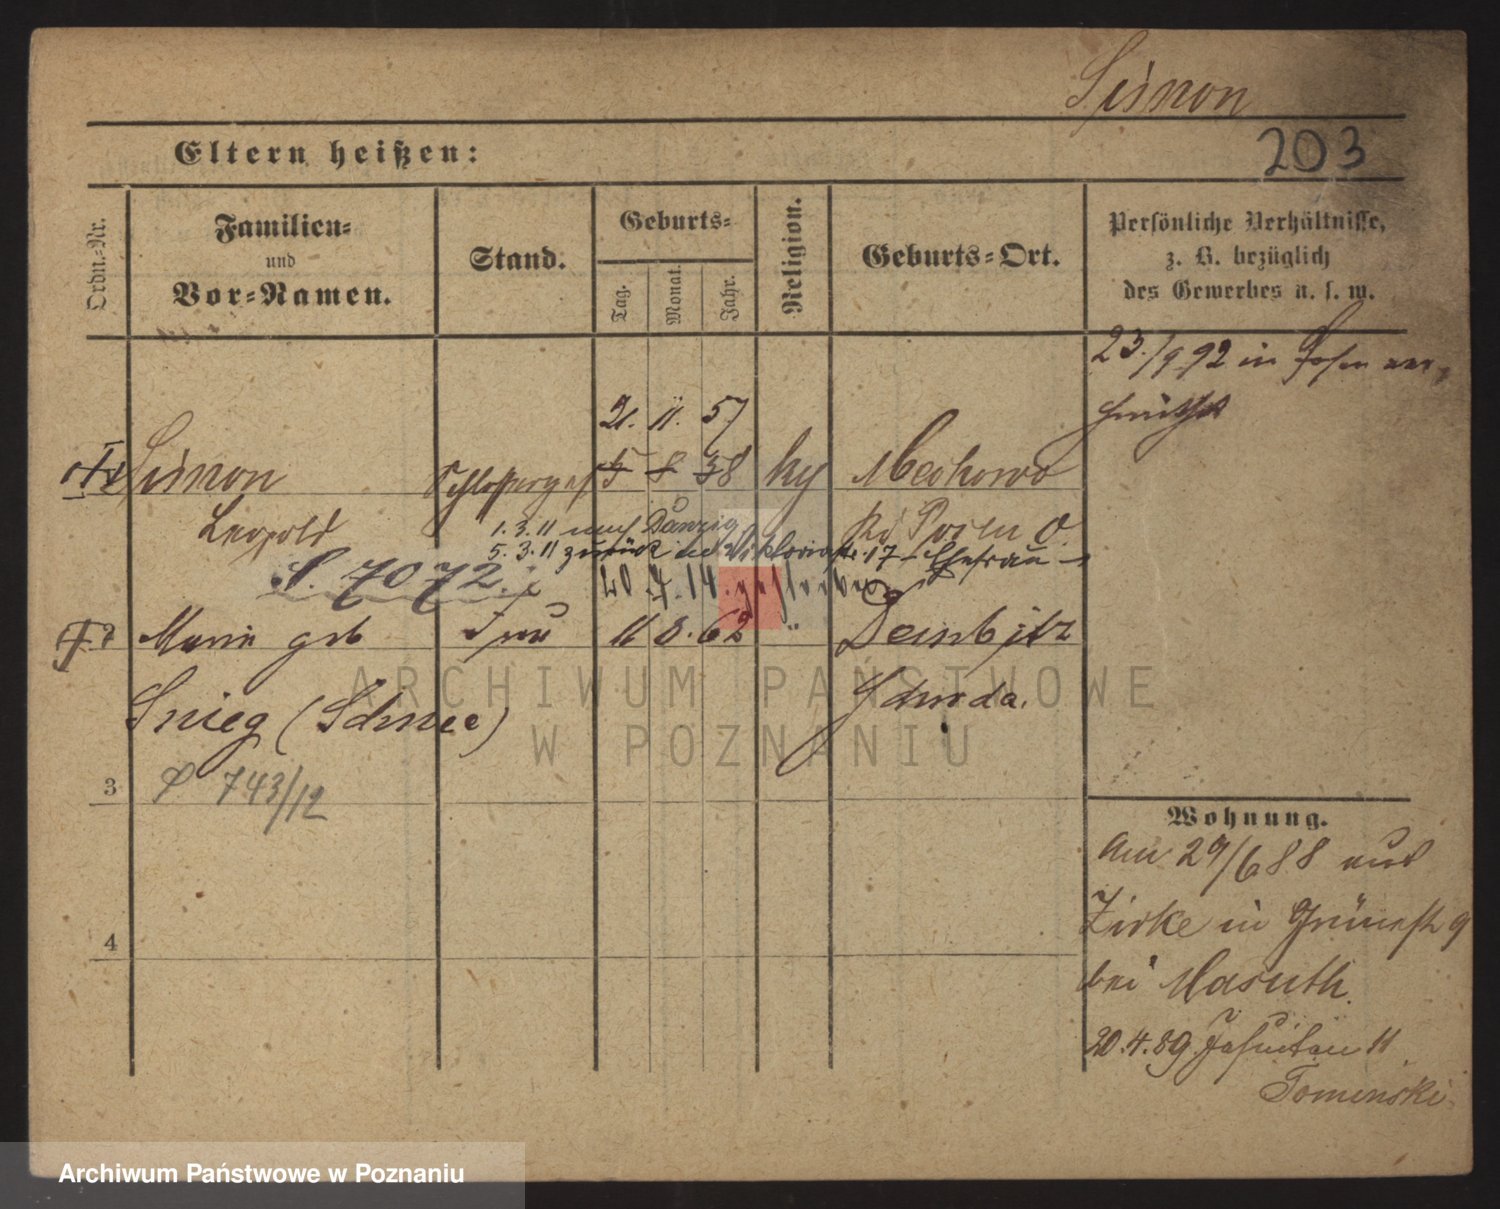 Simon
203
Eltern heißen:
Ordn.-Nr.
Familien-
und
Vor-Namen.
Stand.
Geburts-
Tag.
Monat.
Jahr.
Religion.
Geburts-Ort.
Persönliche Verhältnisse,
z. B. bezüglich
des Gewerbes u. s. w.
23./9 92 in Posen ver-
21. 11. 57
Simon
5 8 38
Mechowo
Leopold
Kr Posen O.
1. 3. 11 nach Danzig
5. 3. 11 zurück 17 - Ehefrau -
S. 7072.
20 14. gestorben
Marie geb
Frau
11 8. 62
"
Dembitz
Snieg (Schnee)
Schroda.
P 743/12
3
4
Wohnung.
Am 29/6 88 aus
Zirke in Grünestr 9
bei Masuth.
20.4.89 Jesuiten 11
Tominski
ARCHIWUM PAŃSTWOWE
W POZNANIU
Archiwum Państwowe w Poznaniu